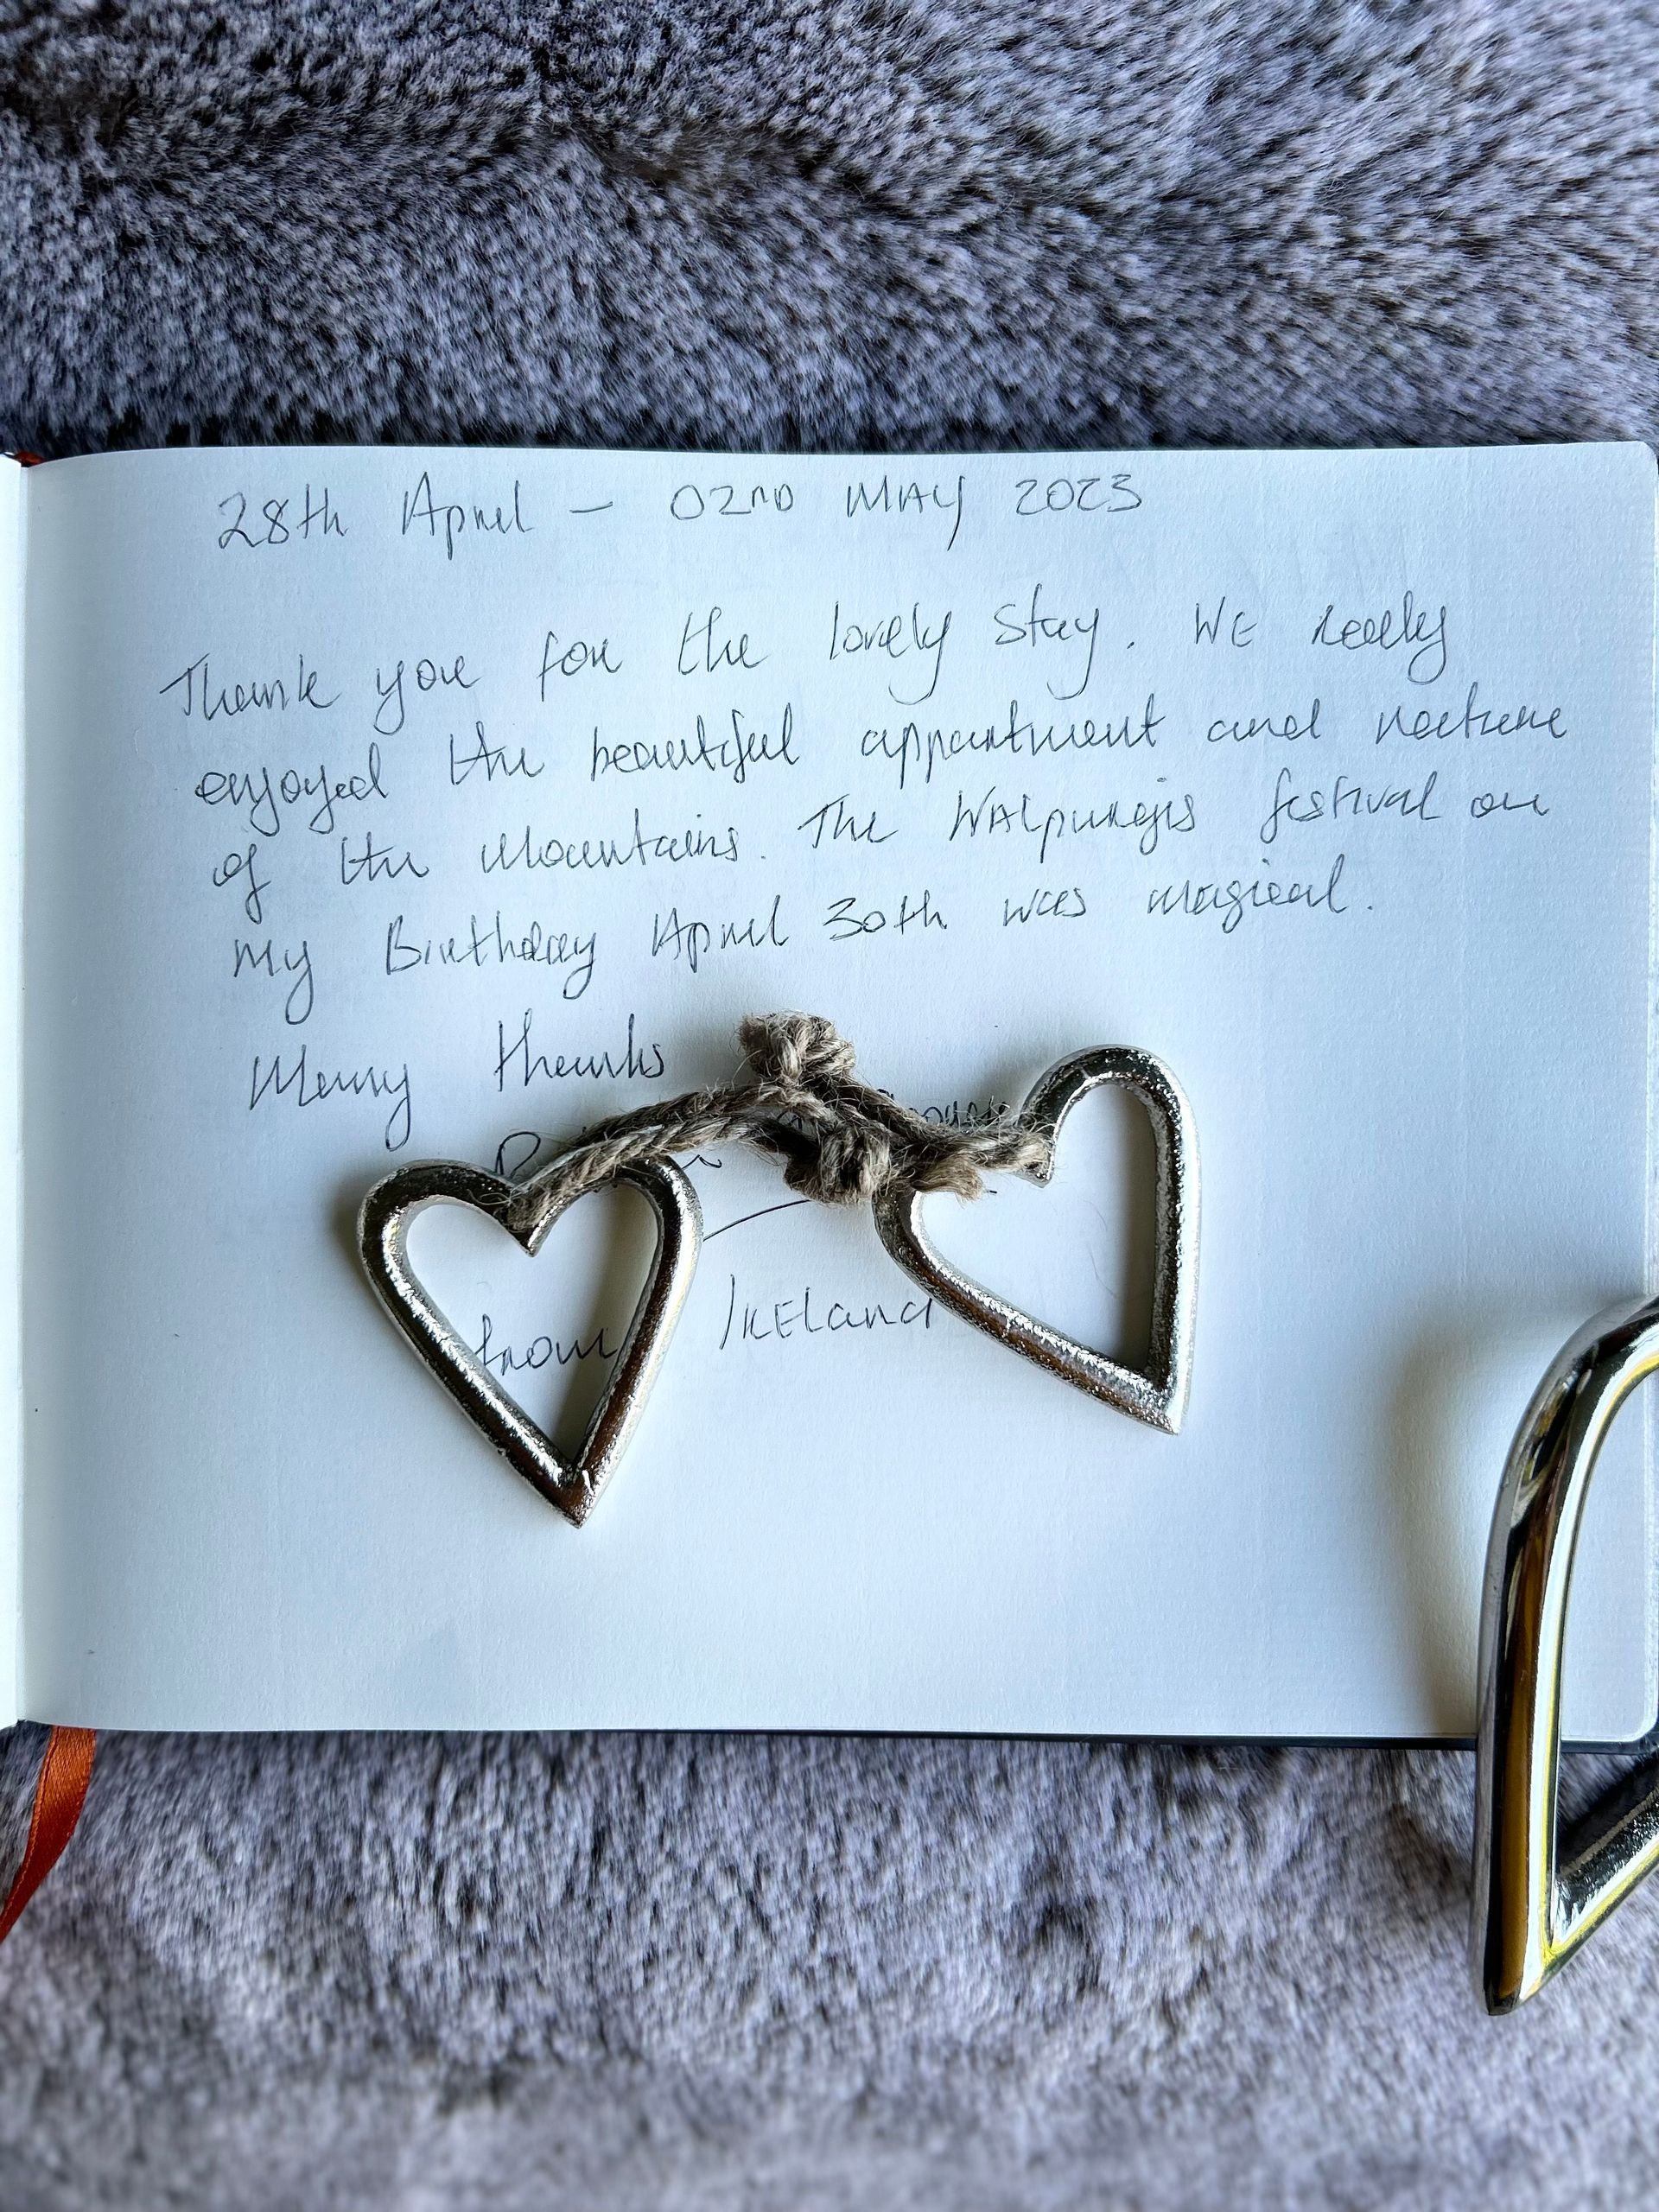 28th April - 02ND MAY 2023
Thank you for the lovely stay. WE really
enjoyed the beautiful appartment and nature
of the Mountains. The WALpurgis festival on
my Birthday April 30th was magical.
Many thanks
from IRELand